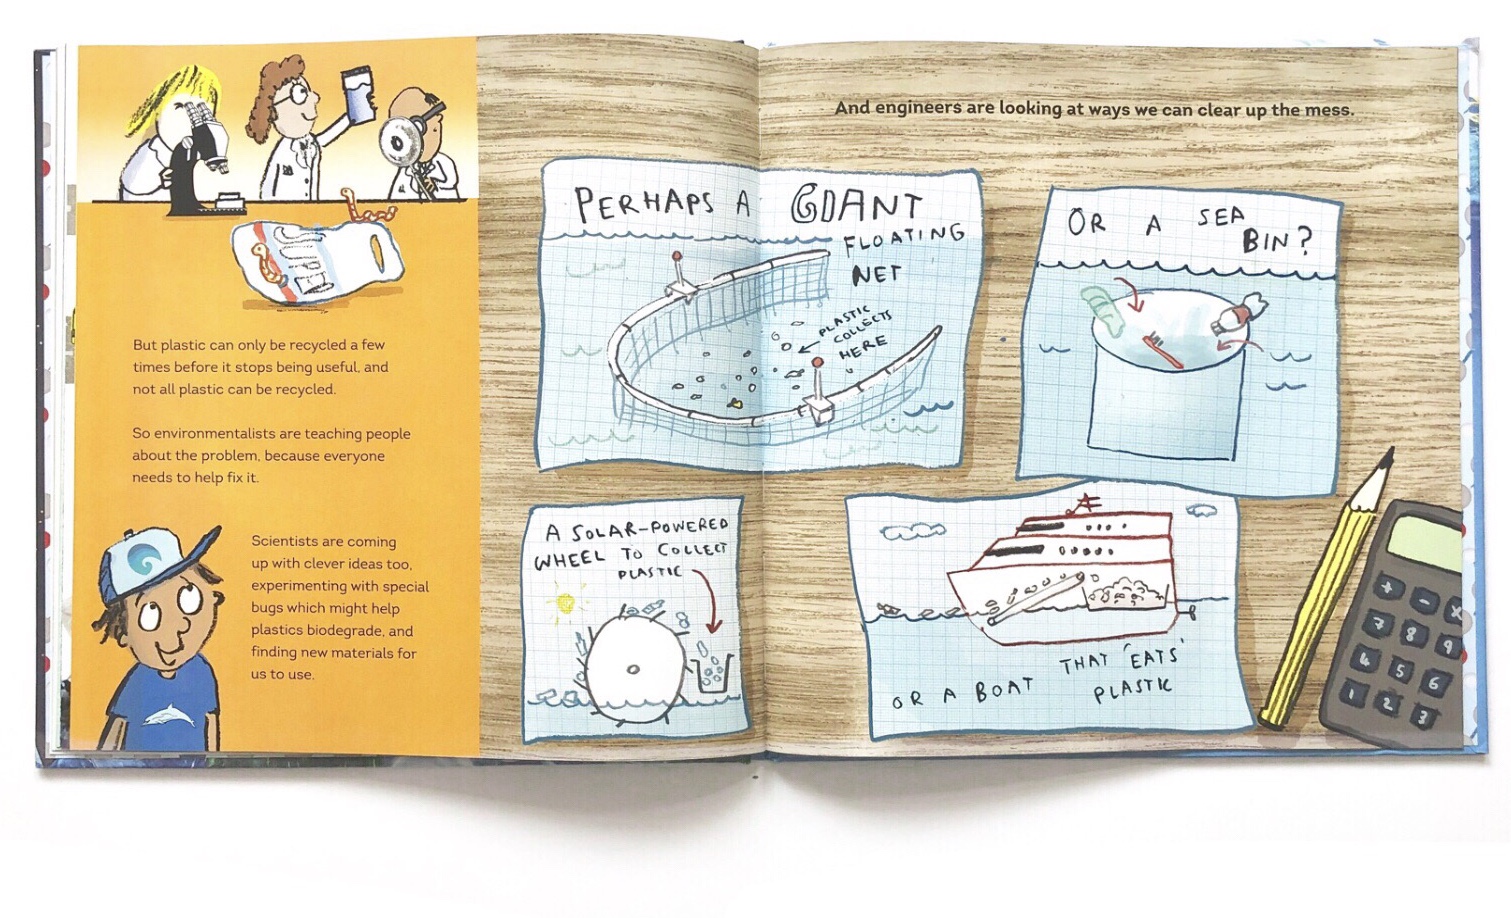 But plastic can only be recycled a few
times before it stops being useful, and
not all plastic can be recycled.
So environmentalists are teaching people
about the problem, because everyone
needs to help fix it.
Scientists are coming
up with clever ideas too,
experimenting with special
bugs which might help
plastics biodegrade, and
finding new materials for
us to use.
And engineers are looking at ways we can clear up the mess.
PERHAPS A GIANT
FLOATING
NET
PLASTIC
COLLECTS
HERE
OR A SEA
BIN?
A SOLAR-POWERED
WHEEL TO COLLECT
PLASTIC
OR A BOAT THAT 'EATS'
PLASTIC
+ - x
7 8 9
4 5 6
1 2 3